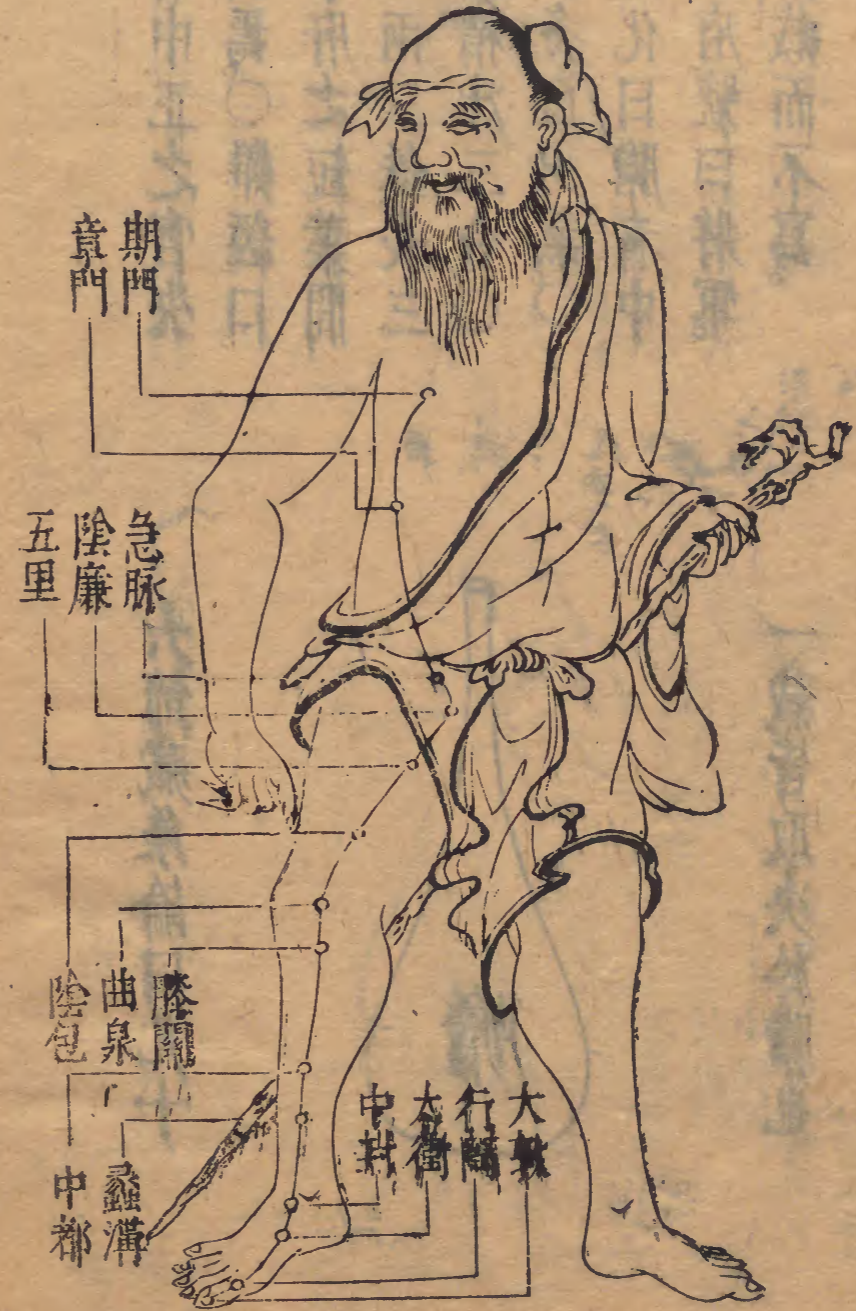 期門
章門
急脉
陰廉
五里
膝關
曲泉
陰包
蠡溝
中都
大敦
行間
太衝
中封